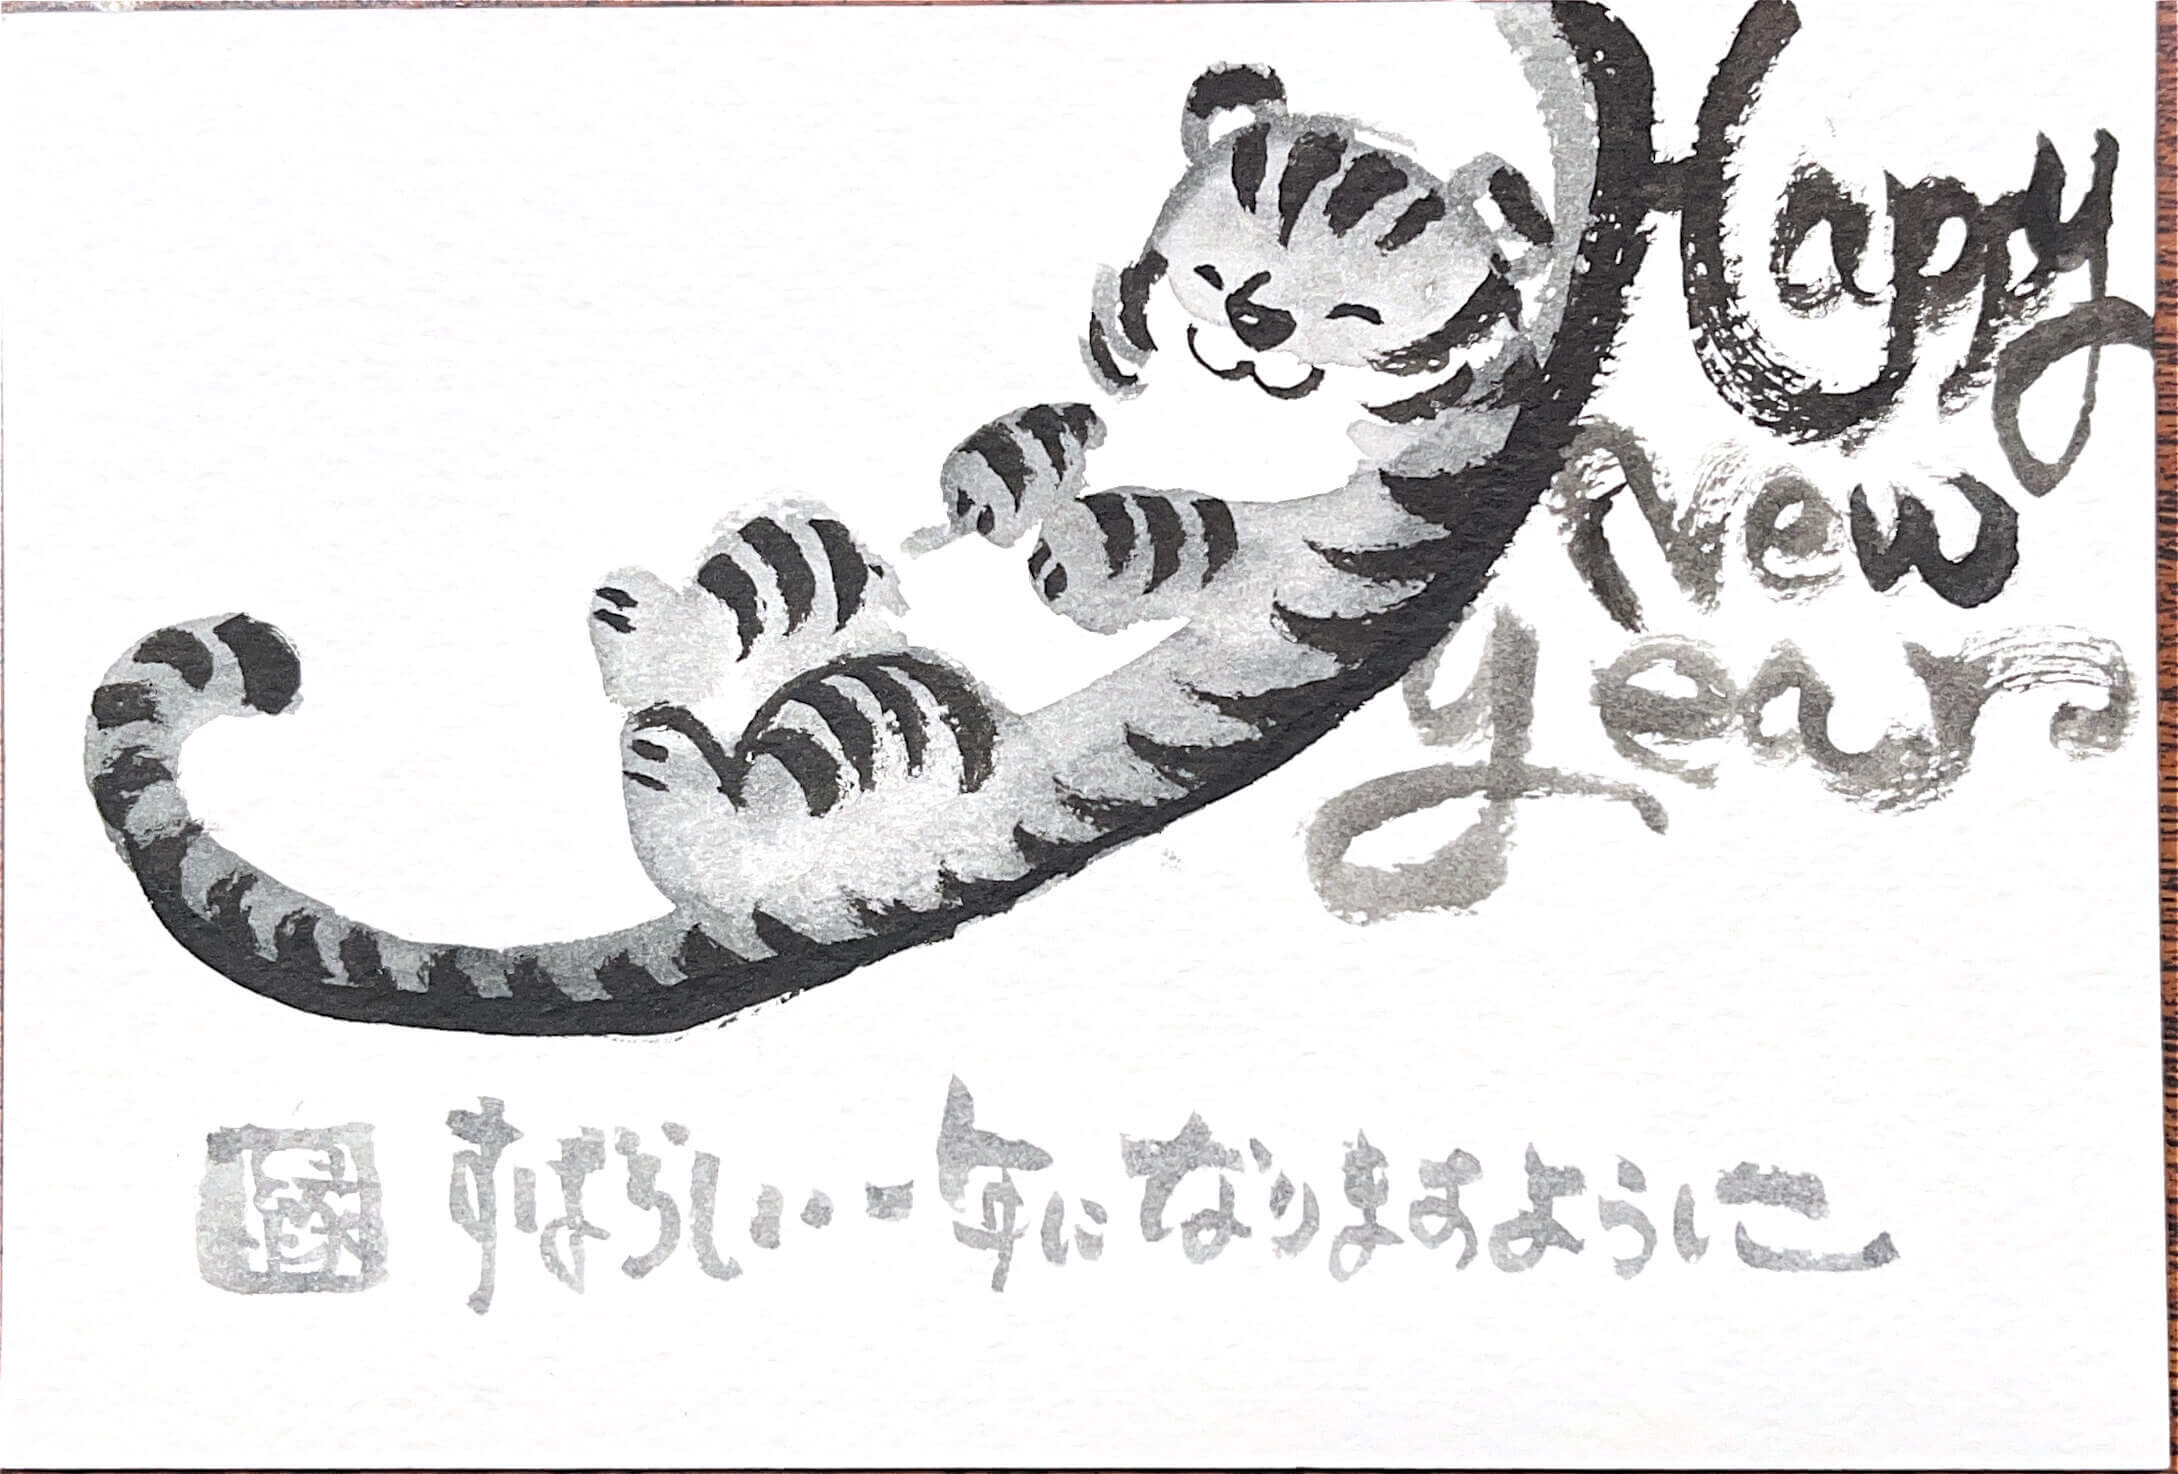 Happy
New
Year
すばらしい一年になりますように